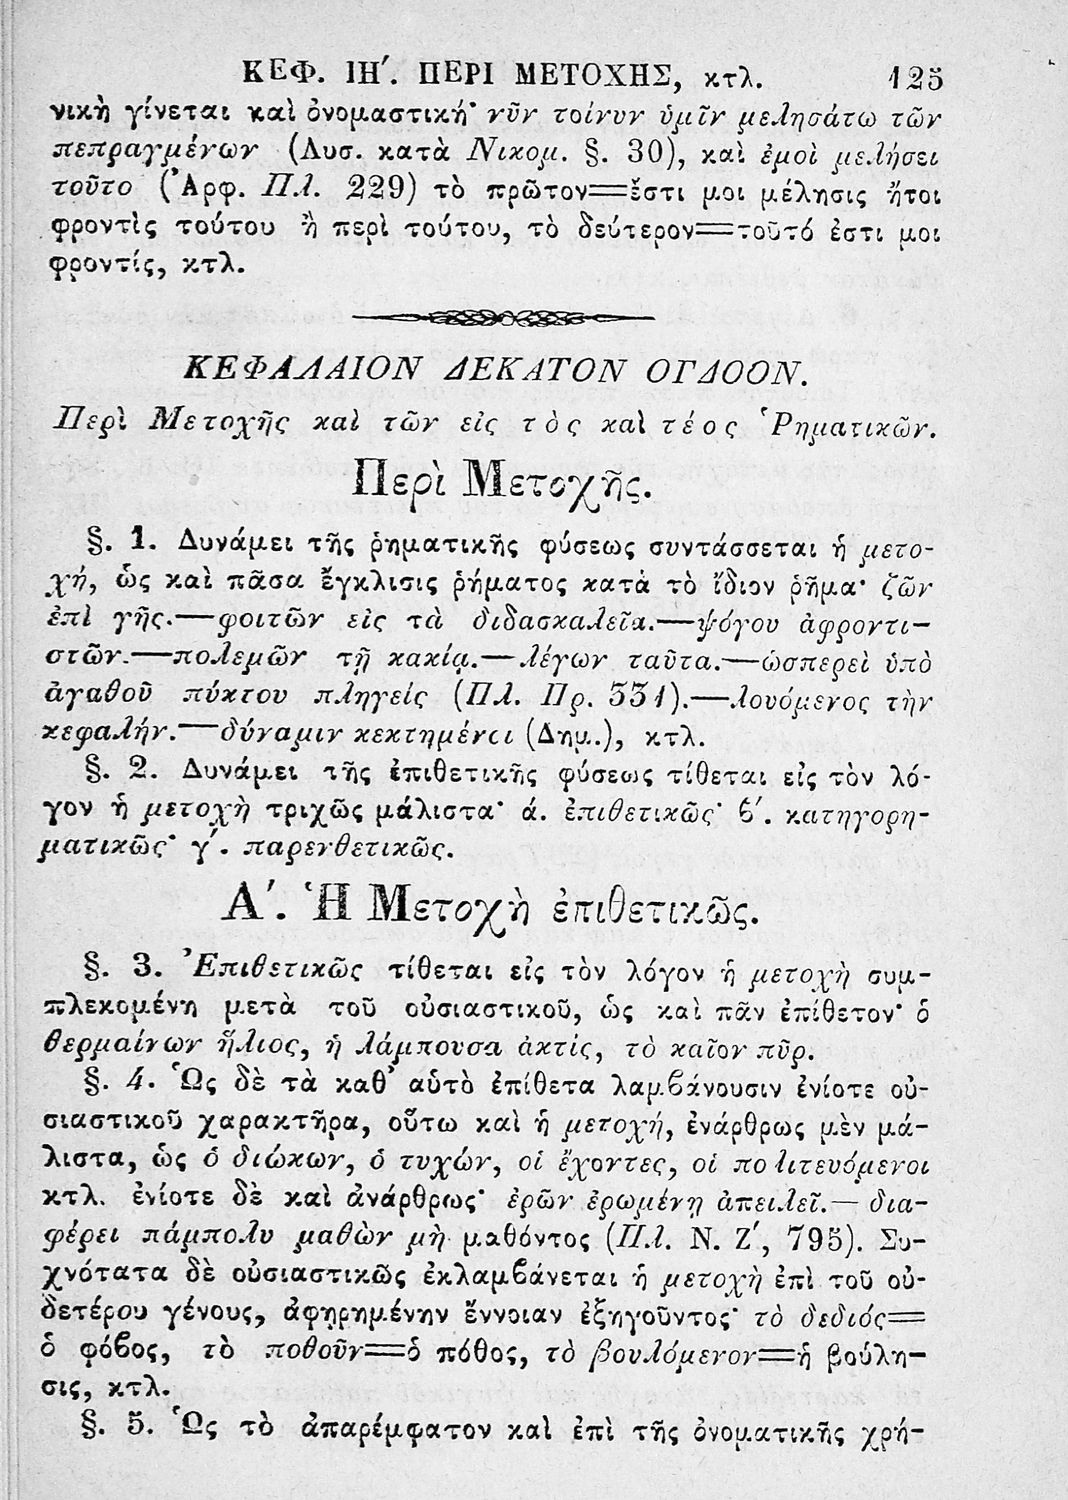 ΚΕΦ. ΙΗ´. ΠΕΡΙ ΜΕΤΟΧΗΣ, κτλ. 125
νικὴ γίνεται καὶ ὀνομαστική· νῦν τοίνυν ὑμῖν μελησάτω τῶν
πεπραγμένων (Λυσ. κατὰ Νικομ. §. 30), καὶ ἐμοὶ μελήσει
τοῦτο (Ἀρφ. Πλ. 229) τὸ πρῶτον=ἔστι μοι μέλησις ἤτοι
φροντὶς τούτου ἢ περὶ τούτου, τὸ δεύτερον=τοῦτό ἐστι μοι
φροντίς, κτλ.
ΚΕΦΑΛΑΙΟΝ ΔΕΚΑΤΟΝ ΟΓΔΟΟΝ.
Περὶ Μετοχῆς καὶ τῶν εἰς τὸς καὶ τέος Ῥηματικῶν.
Περὶ Μετοχῆς.
§. 1. Δυνάμει τῆς ῥηματικῆς φύσεως συντάσσεται ἡ μετο-
χή, ὡς καὶ πᾶσα ἔγκλισις ῥήματος κατὰ τὸ ἴδιον ῥῆμα· ζῶν
ἐπὶ γῆς.—φοιτῶν εἰς τὰ διδασκαλεῖα.—ψόγου ἀφροντι-
στῶν.—πολεμῶν τῇ κακίᾳ.—λέγων ταῦτα.—ὡσπερεὶ ὑπὸ
ἀγαθοῦ πύκτου πληγείς (Πλ. Πρ. 331).—λουόμενος τὴν
κεφαλήν.—δύναμιν κεκτημένοι (Δημ.), κτλ.
§. 2. Δυνάμει τῆς ἐπιθετικῆς φύσεως τίθεται εἰς τὸν λό-
γον ἡ μετοχὴ τριχῶς μάλιστα· ά. ἐπιθετικῶς· ϐ´. κατηγορη-
ματικῶς· γ´. παρενθετικῶς.
Α´. Ἡ Μετοχὴ ἐπιθετικῶς.
§. 3. Ἐπιθετικῶς τίθεται εἰς τὸν λόγον ἡ μετοχὴ συμ-
πλεκομένη μετὰ τοῦ οὐσιαστικοῦ, ὡς καὶ πᾶν ἐπίθετον· ὁ
θερμαίνων ἥλιος, ἡ λάμπουσα ἀκτίς, τὸ καῖον πῦρ.
§. 4. Ὡς δὲ τὰ καθ' αὑτὸ ἐπίθετα λαμϐάνουσιν ἐνίοτε οὐ-
σιαστικοῦ χαρακτῆρα, οὕτω καὶ ἡ μετοχή, ἐνάρθρως μὲν μά-
λιστα, ὡς ὁ διώκων, ὁ τυχών, οἱ ἔχοντες, οἱ πολιτευόμενοι
κτλ. ἐνίοτε δὲ καὶ ἀνάρθρως· ἐρῶν ἐρωμένῃ ἀπειλεῖ.— δια-
φέρει πάμπολυ μαθὼν μὴ μαθόντος (Πλ. Ν. Ζ´, 795). Συ-
χνότατα δὲ οὐσιαστικῶς ἐκλαμϐάνεται ἡ μετοχὴ ἐπὶ τοῦ οὐ-
δετέρου γένους, ἀφῃρημένην ἔννοιαν ἐξηγοῦντος· τὸ δεδιός=
ὁ φόϐος, τὸ ποθοῦν=ὁ πόθος, τὸ βουλόμενον=ἡ βούλη-
σις, κτλ.
§. 5. Ὡς τὸ ἀπαρέμφατον καὶ ἐπὶ τῆς ὀνοματικῆς χρή-